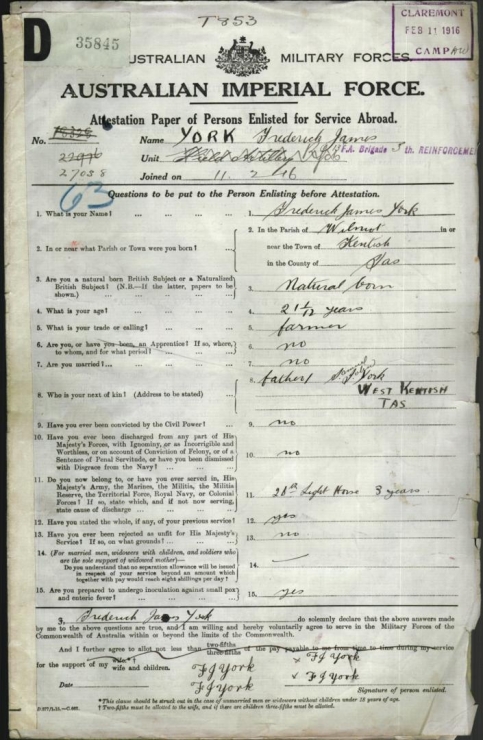 T853
D
35845
CLAREMONT
FEB 11 1916
CAMP
AUSTRALIAN MILITARY FORCES.
AUSTRALIAN IMPERIAL FORCE.
Attestation Paper of Persons Enlisted for Service Abroad.
No. Name YORK Frederick James
Unit Field Artillery F.A. Brigade 5th. REINFORCEMEN
27038
Joined on 11. 2. 16
63
Questions to be put to the Person Enlisting before Attestation.
1. What is your Name? ... ... ... 1. Frederick James York
2. In or near what Parish or Town were you born? ... 2. In the Parish of Wilmot in or
near the Town of Kentish
in the County of Tas
3. Are you a natural born British Subject or a Naturalized
British Subject? (N.B.—If the latter, papers to be
shown.) ... ... ... 3. Natural born
4. What is your age? ... ... ... 4. 21 1/12 years
5. What is your trade or calling? ... ... 5. farmer
6. Are you, or have you been, an Apprentice? If so, where,
to whom, and for what period? ... ... 6. no
7. Are you married? ... ... ... 7. no
8. Who is your next of kin? (Address to be stated) ... 8. father York
WEST KENTISH
TAS
9. Have you ever been convicted by the Civil Power? ... 9. no
10. Have you ever been discharged from any part of His
Majesty's Forces, with Ignominy, or as Incorrigible and
Worthless, or on account of Conviction of Felony, or of a
Sentence of Penal Servitude, or have you been dismissed
with Disgrace from the Navy? ... ... 10. no
11. Do you now belong to, or have you ever served in, His
Majesty's Army, the Marines, the Militia, the Militia
Reserve, the Territorial Force, Royal Navy, or Colonial
Forces? If so, state which, and if not now serving,
state cause of discharge ... ... 11. 26th Light Horse 3 years.
12. Have you stated the whole, if any, of your previous service? 12. yes
13. Have you ever been rejected as unfit for His Majesty's
Service? If so, on what grounds? ... ... 13. no
14. (For married men, widowers with children, and soldiers who
are the sole support of widowed mother)—
Do you understand that no separation allowance will be issued
in respect of your service beyond an amount which
together with pay would reach eight shillings per day? 14. —
15. Are you prepared to undergo inoculation against small pox
and enteric fever? ... ... ... 15. yes
I, Frederick James York do solemnly declare that the above answers made
by me to the above questions are true, and I am willing and hereby voluntarily agree to serve in the Military Forces of the
Commonwealth of Australia within or beyond the limits of the Commonwealth.
And I further agree to allot not less than two-fifths
three-fifths of the pay payable to me from time to time during my service
for the support of my wife*†
wife and children.
F J York x F J York
Date F J York x F J York
Signature of person enlisted.
*This clause should be struck out in the case of unmarried men or widowers without children under 18 years of age.
† Two-fifths must be allotted to the wife, and if there are children three-fifths must be allotted.